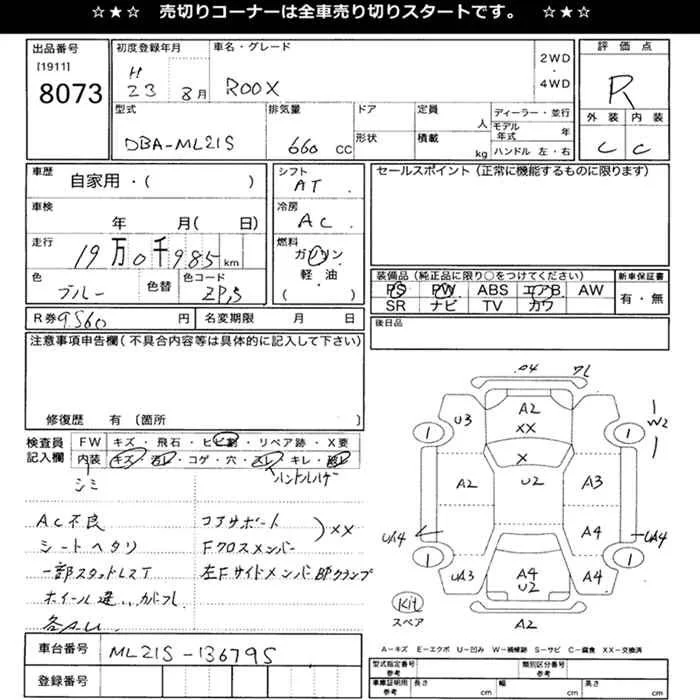 ☆★☆ 売切りコーナーは全車売り切りスタートです。 ☆★☆
出品番号
[1911]
8073
初度登録年月
H
23 8月
車名・グレード
ROOX
2WD
・
4WD
評価点
R
外装 内装
C C
型式
DBA-ML21S
排気量
660 CC
ドア
形状
定員
人
積載
kg
ディーラー・並行
モデル年式 年
ハンドル 左・右
車歴
自家用・( )
車検
年 月( 日)
走行
19万0千985 km
色
ブルー
色替
色コード
ZPS
シフト
AT
冷房
AC
燃料
ガソリン
軽・油
( )
セールスポイント(正常に機能するものに限ります)
装備品(純正品に限り○をつけてください)
PS PW ABS エアB AW
SR ナビ TV カワ
新車保証書
有・無
R券 9560 円
名変期限 月 日
後日品
注意事項申告欄(不具合内容等は具体的に記入して下さい)
修復歴 有 (箇所 )
検査員
記入欄
FW キズ・飛石・ヒビ割・リペア跡・X要
内装 キズ・汚レ・コゲ・穴・スレ・キレ・破レ
シミ
ハンドルハゲ
AC不良
シートヘタリ
一部スタッドレスT
コアサポート
Fクロスメンバー
) XX
左Fサイドメンバー
A2
XX
X
U2
U3
W2
1
1
A2
A3
UA4
A4
UA4
1
1
UA3
A4
U2
A4
Kit
スペア
A2
A-キズ E-エクボ U-凹み W-補修跡 S-サビ C-腐食 XX-交換済
車台番号
ML21S-136795
登録番号
型式指定番号
参考
類別区分番号
参考
車庫証明用
参考
長さ cm
幅 cm
高さ cm